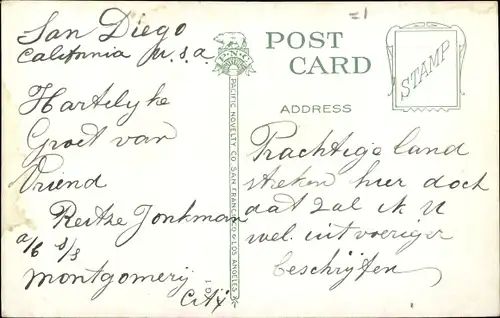 San Diego
California U.S.A.
Hartelyke
Groet van
Vriend
Reitze Jonkman
a/b s/s
Montgomery
City
P.N.C.
PACIFIC NOVELTY CO. SAN FRANCISCO & LOS ANGELES
POST
CARD
ADDRESS
STAMP
Prachtige land
streken hier doch
dat zal ik U
wel uitvoeriger
beschrijten